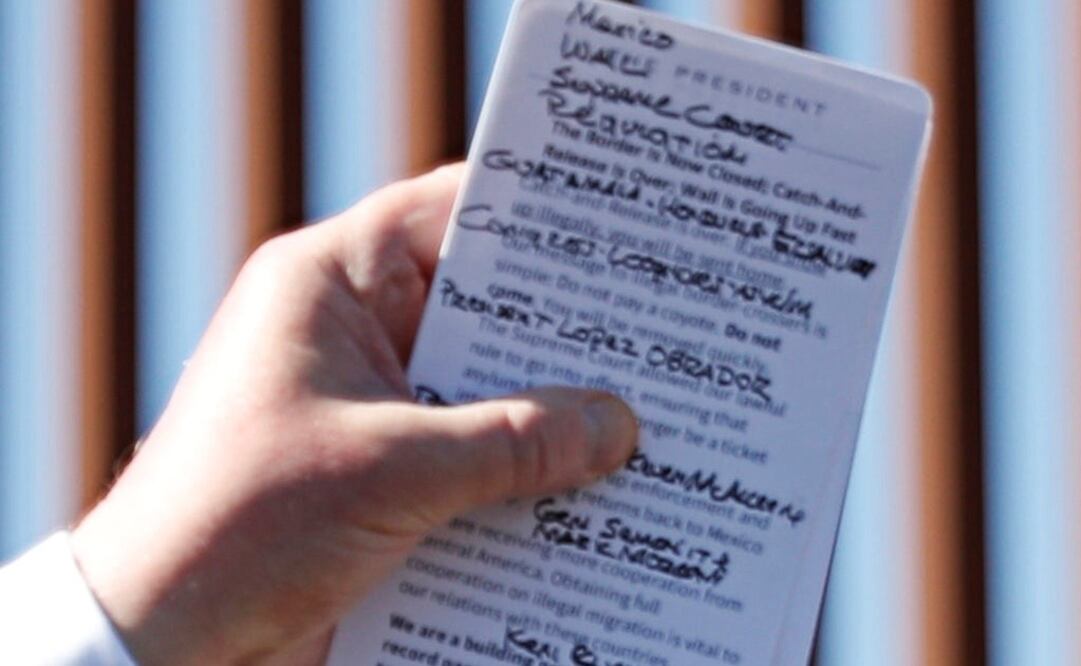 Mexico
WALL PRESIDENT
Supreme Court
The Border Is Now Closed; Catch-And-
Release Is Over; Wall Is Going Up Fast
GUATAMALA - HONDURAS
Catch-and-Release is over. If you
up illegally, you will be sent home.
Our message to illegal border crossers is
simple: Do not pay a coyote. Do not
come. You will be removed quickly.
PRESIDENT LOPEZ OBRADOR
The Supreme Court allowed our lawful
rule to go into effect, ensuring that
asylum
longer be a ticket
KEVIN
enforcement and
returns back to Mexico
GEN SEMONITE
MARK MORGAN
are receiving more cooperation from
Central America. Obtaining full
cooperation on illegal migration is vital to
our relations with these countries.
We are a building
record